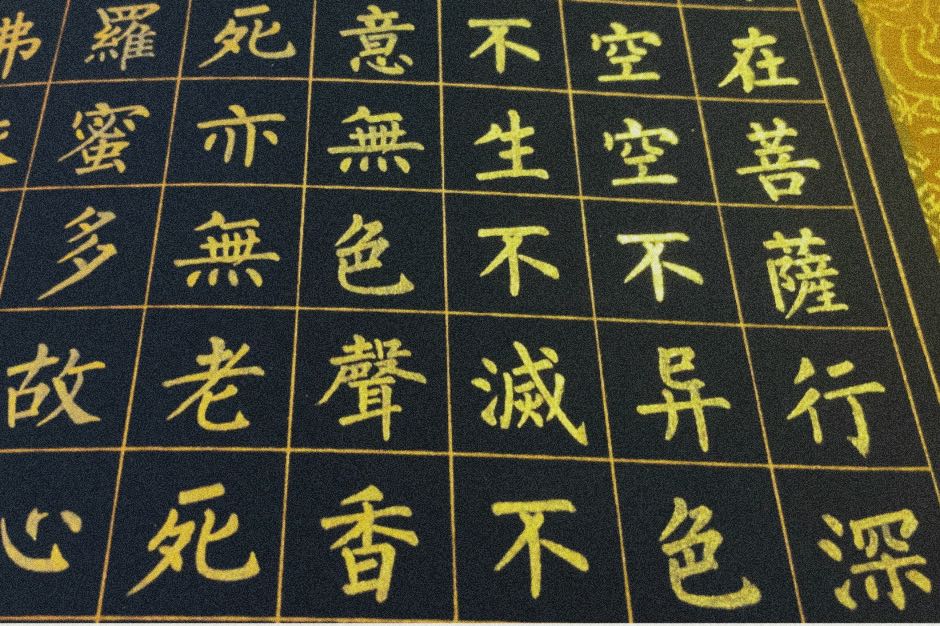 在菩薩行深
空空不异色
不生不滅不
意無色聲香
死亦無老死
羅蜜多故心